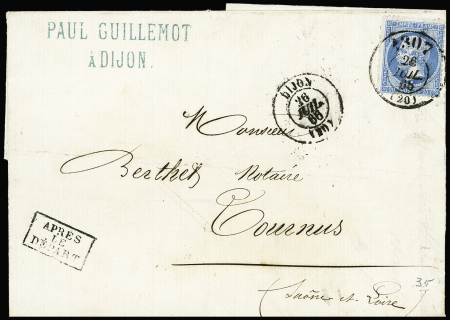 PAUL GUILLEMOT
À DIJON.
1307
26
JUIL
65
(20)
DIJON
26
JUIL
65
(20)
Monsieur
Berthet Notaire
Tournus
APRES
LE
DÉPART
(Saône et Loire)
35